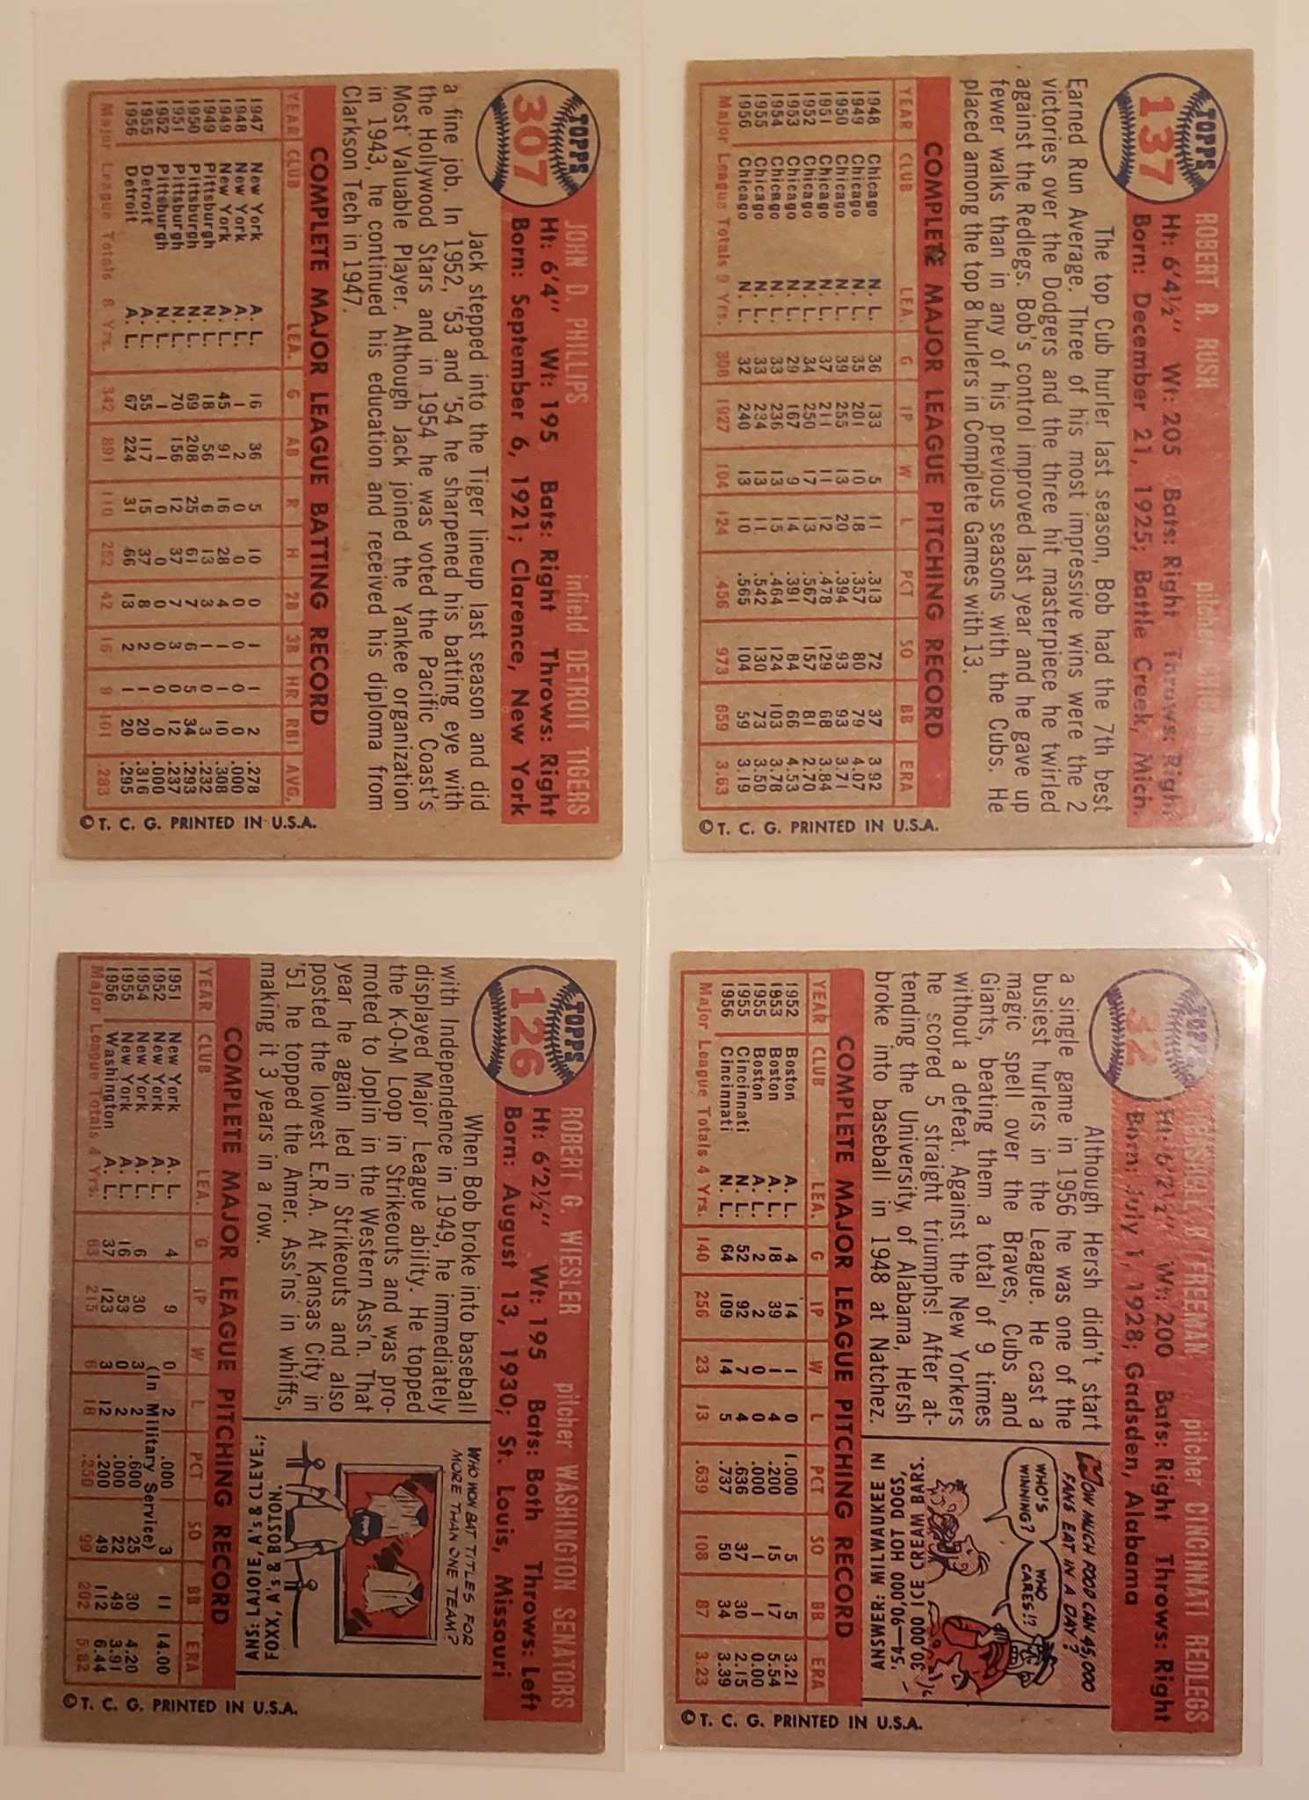 TOPPS
137
ROBERT R. RUSH pitcher
Ht: 6'4½" Wt: 205 Bats: Right Throws: Right
Born: December 21, 1925; Battle Creek, Mich.
The top Cub hurler last season, Bob had the 7th best
Earned Run Average. Three of his most impressive wins were the 2
victories over the Dodgers and the three hit masterpiece he twirled
against the Redlegs. Bob's control improved last year and he gave up
fewer walks than in any of his previous seasons with the Cubs. He
placed among the top 8 hurlers in Complete Games with 13.
COMPLETE MAJOR LEAGUE PITCHING RECORD
YEAR CLUB LEA. G IP W L PCT SO BB ERA
1948 Chicago N. L. 36 133 5 11 .313 72 37 3.92
1949 Chicago N. L. 35 201 10 18 .357 80 79 4.07
1950 Chicago N. L. 39 255 13 20 .394 93 93 3.71
1951 Chicago N. L. 37 211 11 12 .478 129 68 3.84
1952 Chicago N. L. 34 250 17 13 .567 157 81 2.70
1953 Chicago N. L. 29 167 9 14 .391 84 66 4.53
1954 Chicago N. L. 33 236 13 15 .464 124 103 3.78
1955 Chicago N. L. 33 234 13 11 .542 130 73 3.50
1956 Chicago N. L. 32 240 13 10 .565 104 59 3.19
Major League Totals 9 Yrs. 308 1927 104 124 .456 973 659 3.63
© T. C. G. PRINTED IN U.S.A.
TOPPS
307
JOHN D. PHILLIPS infield DETROIT TIGERS
Ht: 6'4" Wt: 195 Bats: Right Throws: Right
Born: September 6, 1921; Clarence, New York
Jack stepped into the Tiger lineup last season and did
a fine job. In 1952, '53 and '54 he sharpened his batting eye with
the Hollywood Stars and in 1954 he was voted the Pacific Coast's
Most Valuable Player. Although Jack joined the Yankee organization
in 1943, he continued his education and received his diploma from
Clarkson Tech in 1947.
COMPLETE MAJOR LEAGUE BATTING RECORD
YEAR CLUB LEA. G AB R H 2B 3B HR RBI AVG.
1947 New York A. L. 16 36 5 10 0 1 1 2 .278
1948 New York A. L. 1 2 0 0 0 0 0 0 .000
1949 New York A. L. 45 91 16 28 4 1 1 10 .308
1949 Pittsburgh N. L. 18 56 6 13 3 1 0 3 .232
1950 Pittsburgh N. L. 69 208 25 61 7 6 5 34 .293
1951 Pittsburgh N. L. 70 156 12 37 7 3 0 12 .237
1952 Pittsburgh N. L. 1 1 0 0 0 0 0 0 .000
1955 Detroit A. L. 55 117 15 37 8 2 1 20 .316
1956 Detroit A. L. 67 224 31 66 13 2 1 20 .295
Major League Totals 8 Yrs. 342 891 110 252 42 16 9 101 .283
© T. C. G. PRINTED IN U.S.A.
TOPPS
32
HERSHELL B. FREEMAN pitcher CINCINNATI REDLEGS
Ht: 6'2½" Wt: 200 Bats: Right Throws: Right
Born: July 1, 1928; Gadsden, Alabama
Although Hersh didn't start
a single game in 1956 he was one of the
busiest hurlers in the League. He cast a
magic spell over the Braves, Cubs and
Giants, beating them a total of 9 times
without a defeat. Against the New Yorkers
he scored 5 straight triumphs! After at-
tending the University of Alabama, Hersh
broke into baseball in 1948 at Natchez.
HOW MUCH FOOD CAN 45,000
FANS EAT IN A DAY?
WHO'S
WINNING?
WHO
CARES!?
ANSWER: MILWAUKEE IN
'54—90,000 HOT DOGS,
30,000 ICE CREAM BARS.
COMPLETE MAJOR LEAGUE PITCHING RECORD
YEAR CLUB LEA. G IP W L PCT SO BB ERA
1952 Boston A. L. 4 14 1 0 1.000 5 5 3.21
1953 Boston A. L. 18 39 1 4 .200 15 17 5.54
1955 Boston A. L. 2 2 0 0 .000 1 1 0.00
1955 Cincinnati N. L. 52 92 7 4 .636 37 30 2.15
1956 Cincinnati N. L. 64 109 14 5 .737 50 34 3.39
Major League Totals 4 Yrs. 140 256 23 13 .639 108 87 3.23
© T. C. G. PRINTED IN U.S.A.
TOPPS
126
ROBERT G. WIESLER pitcher WASHINGTON SENATORS
Ht: 6'2½" Wt: 195 Bats: Both Throws: Left
Born: August 13, 1930; St. Louis, Missouri
When Bob broke into baseball
with Independence in 1949, he immediately
displayed Major League ability. He topped
the K-O-M Loop in Strikeouts and was pro-
moted to Joplin in the Western Ass'n. That
year he again led in Strikeouts and also
posted the lowest E.R.A. At Kansas City in
'51 he topped the Amer. Ass'ns' in whiffs,
making it 3 years in a row.
WHO WON BAT TITLES FOR
MORE THAN ONE TEAM?
ANS: LAJOIE, A's & CLEVE.;
FOXX, A's & BOSTON.
COMPLETE MAJOR LEAGUE PITCHING RECORD
YEAR CLUB LEA. G IP W L PCT SO BB ERA
1951 New York A. L. 4 9 0 2 .000 3 11 14.00
1952 New York A. L. (In Military Service)
1954 New York A. L. 6 30 3 2 .600 25 30 4.20
1955 New York A. L. 16 53 0 2 .000 22 49 3.91
1956 Washington A. L. 37 123 3 12 .200 49 112 6.44
Major League Totals 4 Yrs. 63 215 6 18 .250 99 202 5.82
© T. C. G. PRINTED IN U.S.A.